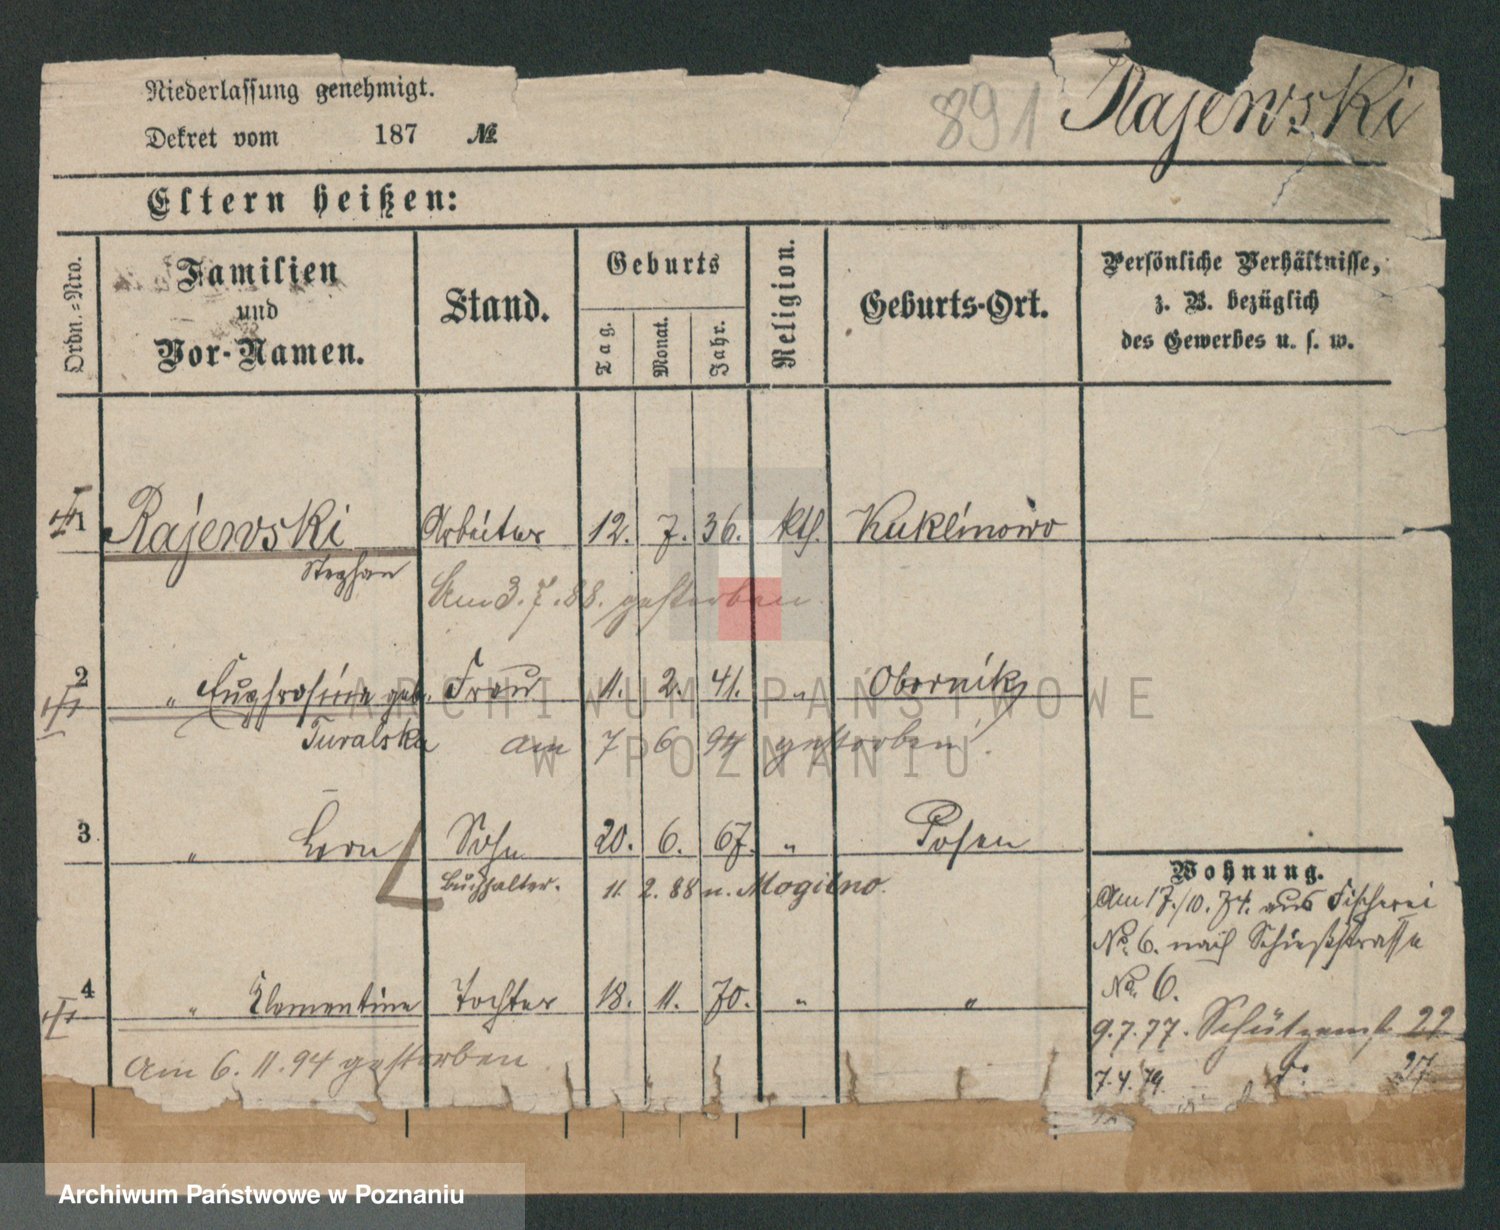 Niederlassung genehmigt.
891 Rajewski
Dekret vom 187 №
Eltern heißen:
Ordn.=Nro.
Familien und Vor-Namen.
Stand.
Geburts
Tag. Monat. Jahr.
Religion.
Geburts-Ort.
Persönliche Verhältnisse,
z. B. bezüglich
des Gewerbes u. s. w.
1 Rajewski Arbeiter 12. 7. 36. kth. Kuklinowo
Stephan
Am 3.7.88. gestorben
2 " Euphrosine geb. Frau 11. 2. 41. " Obornik
Turalska am 7 6 94 gestorben.
3 " Leon Sohn 20. 6. 67. " Posen
Buchhalter. 11 2. 88 n. Mogilno.
4 " Klementine Tochter 18. 11. 70. " "
Am 6. 11. 94 gestorben
Wohnung.
Am 17./10. 74. aus Fischerei
No. 6. nach Schießstrasse
No. 6.
9.7.77. Schützenst 22
7.4.79. 27
ARCHIWUM PAŃSTWOWE
W POZNANIU
Archiwum Państwowe w Poznaniu